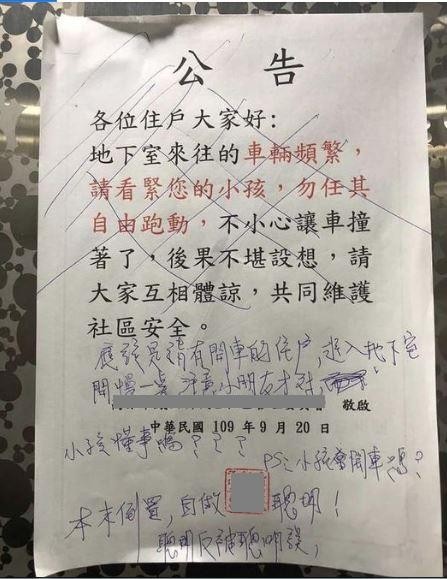 公告
各位住戶大家好:
地下室來往的車輛頻繁，
請看緊您的小孩，勿任其
自由跑動，不小心讓車撞
著了，後果不堪設想，請
大家互相體諒，共同維護
社區安全。
應該是請有開車的住戶，進入地下室
開慢一點 注意小朋友才對
敬啟
中華民國 109 年 9 月 20 日
小孩懂事嗎？？？
PS：小孩會開車嗎？
本末倒置，自做聰明！
聰明反被聰明誤，